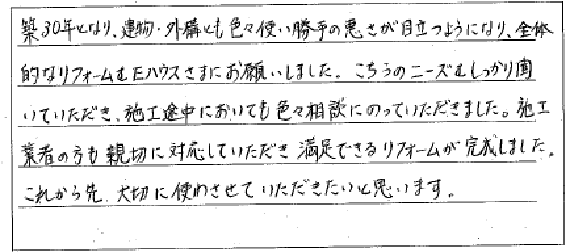 築30年となり、建物・外構とも色々使い勝手の悪さが目立つようになり、全体
的なリフォームをEハウスさまにお願いしました。こちらのニーズもしっかり聞
いていただき、施工途中においても色々相談にのっていただきました。施工
業者の方も親切に対応していただき満足できるリフォームが完成しました。
これから先、大切に使わさせていただきたいと思います。